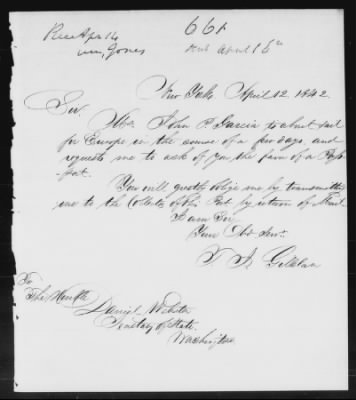 Rec Apr 14
661
Wm Jones
sent April 15th
New York April 12. 1842.
Sir.
Mr. John P. Garcia is about sail
for Europe in the course of a few days, and
requests me to ask of you the favor of a Pass
port.
You will greatly oblige me by transmitting
me to the Collector of this Port by return of Mail
I am Sir
Your Obt Servt.
To
The Honble
Daniel Webster
Secretary of State.
Washington